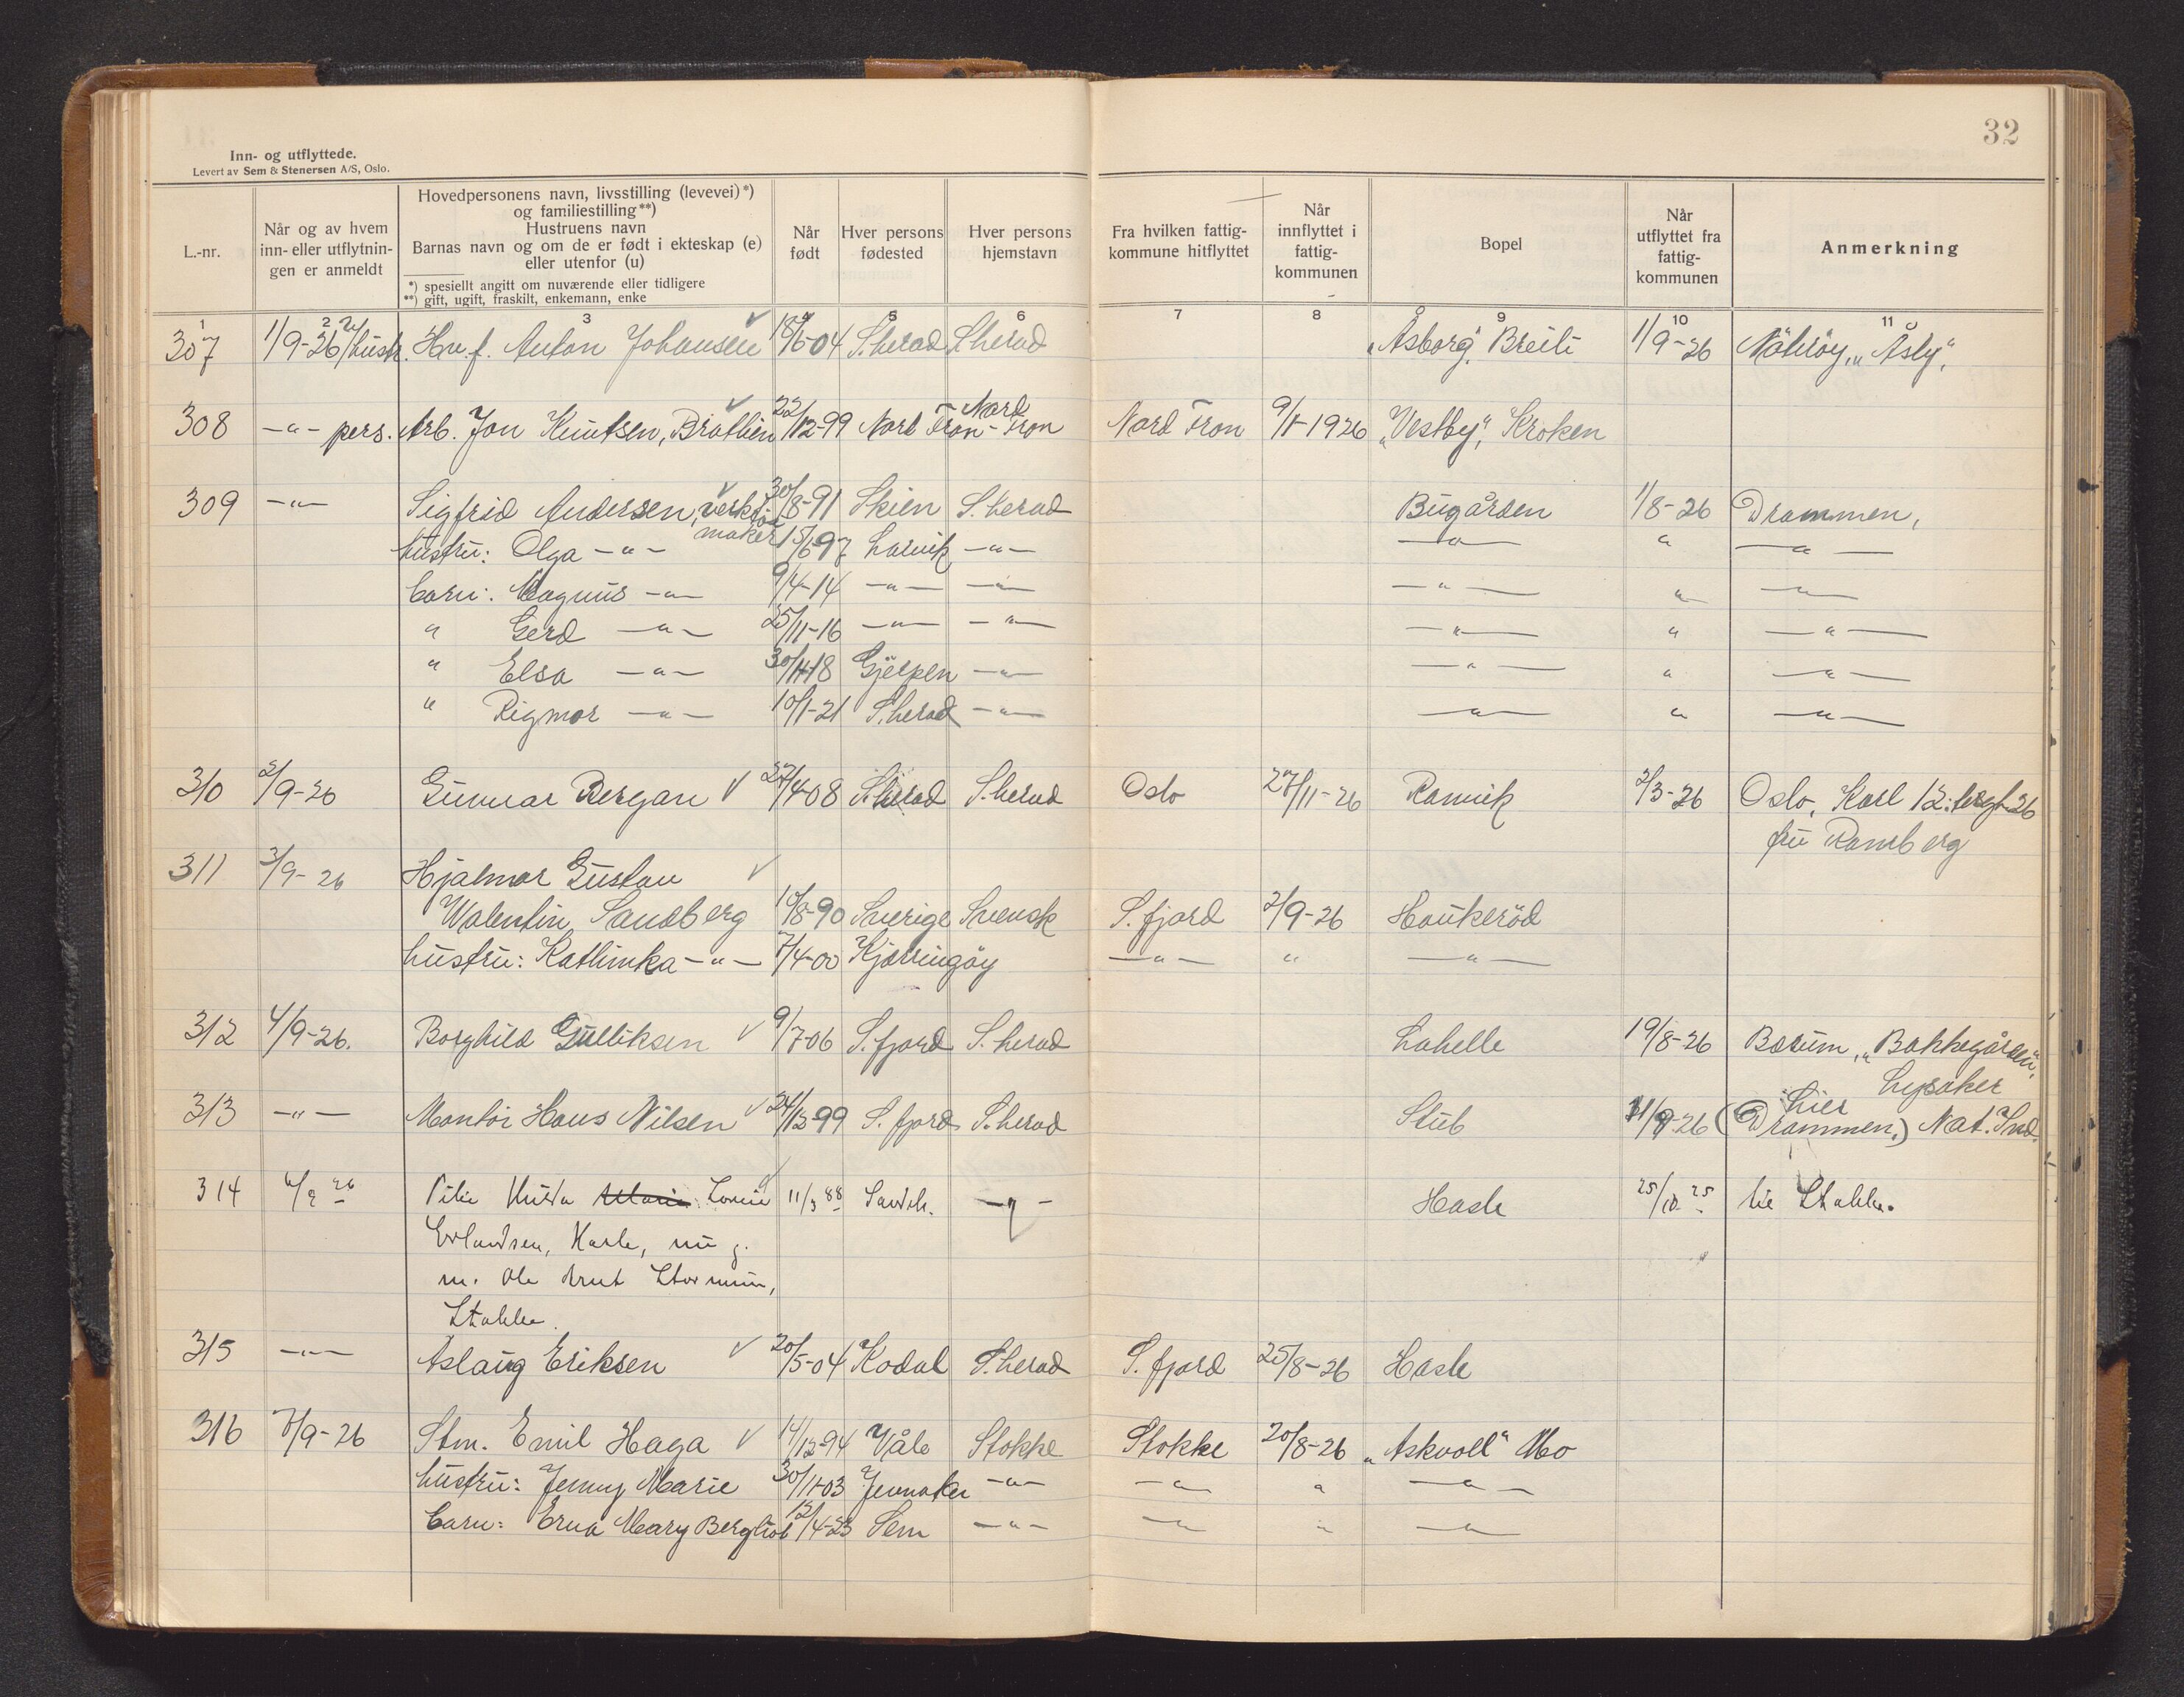 32
Inn- og utflyttede.
Levert av Sem & Stenersen A/S, Oslo.
L.-nr.
Når og av hvem inn- eller utflytnin- gen er anmeldt
Hovedpersonens navn, livsstilling (levevei)*)
og familiestilling**)
Hustruens navn
Barnas navn og om de er født i ekteskap (e)
eller utenfor (u)
*) spesielt angitt om nuværende eller tidligere
**) gift, ugift, fraskilt, enkemann, enke
Når født
Hver persons fødested
Hver persons hjemstavn
Fra hvilken fattig- kommune hitflyttet
Når innflyttet i fattig- kommunen
Bopel
Når utflyttet fra fattig- kommunen
Anmerkning
1 2 3 5 6 7 8 9 10 11
307 1/9-26 v/hustr. Hv.f. Anton Johansen 18/6-04 S.herad S.herad "Åsborg", Breili 1/9-26 Nøtrøy, "Åsly".
308 -"- pers. Arb. Jon Knutsen, Bråthen 22/12-99 Nord Fron Nord-Fron Nord Fron 9/1-1926 "Vestby", Kroken
309 -"- Sigfrid Andersen, verktøi 30/8-91 Skien S.herad Bugården 1/8-26 Drammen,
maker
hustru: Olga -"- 15/6-97 Larvik -"- -"- " -"-
barn: Magnus -"- 9/4-14 -"- -"- -"- " -"-
" Gerd -"- 25/11-16 -"- -"- -"- " -"-
" Elsa -"- 30/11-18 Gjerpen -"- -"- " -"-
" Rigmor -"- 10/1-21 S.herad -"- -"- " -"-
310 2/9-26 Gunnar Bergan 27/4-08 S.herad S.herad Oslo 27/11-26 Ranvik 2/3-26 Oslo, Karl 12: tesgt 26
fru Ramberg
311 3/9-26 Hjalmar Gustav
Valentin Sandberg 10/8-90 Sverige Svensk S.fjord 2/9-26 Haukerød
hustru: Kathinka -"- 7/4-00 Kjærringøy -"- " -"-
312 4/9-26. Borghild Gulliksen 9/7-06 S.fjord S.herad Lahelle 19/8-26 Bærum, "Bakkegården",
Lysaker
313 -"- Montør Hans Nilsen 24/12-99 S.fjord S.herad Stub 1/9-26 (Drammen.) Nat. Ind.
Lier
314 6/9 26 Hulda Marie Lovise 11/3 88 Sandeh. -"- Hasle 25/10 25 til Stokke.
Erlandsen, Hasle, nu g.
m. Ole
Stokke.
315 -"- Aslaug Eriksen 20/5-04 Kodal S.herad S.fjord 25/8-26 Hasle
316 7/9-26 Stm. Emil Haga 14/12-94 Våle Stokke Stokke 20/8-26 "Askvoll" Mo
hustru: Jenny Marie 30/11-03 Jevnaker -"- -"- " -"-
barn: Erna Mary Bergliot 12/4-23 Sem -"- -"- " -"-